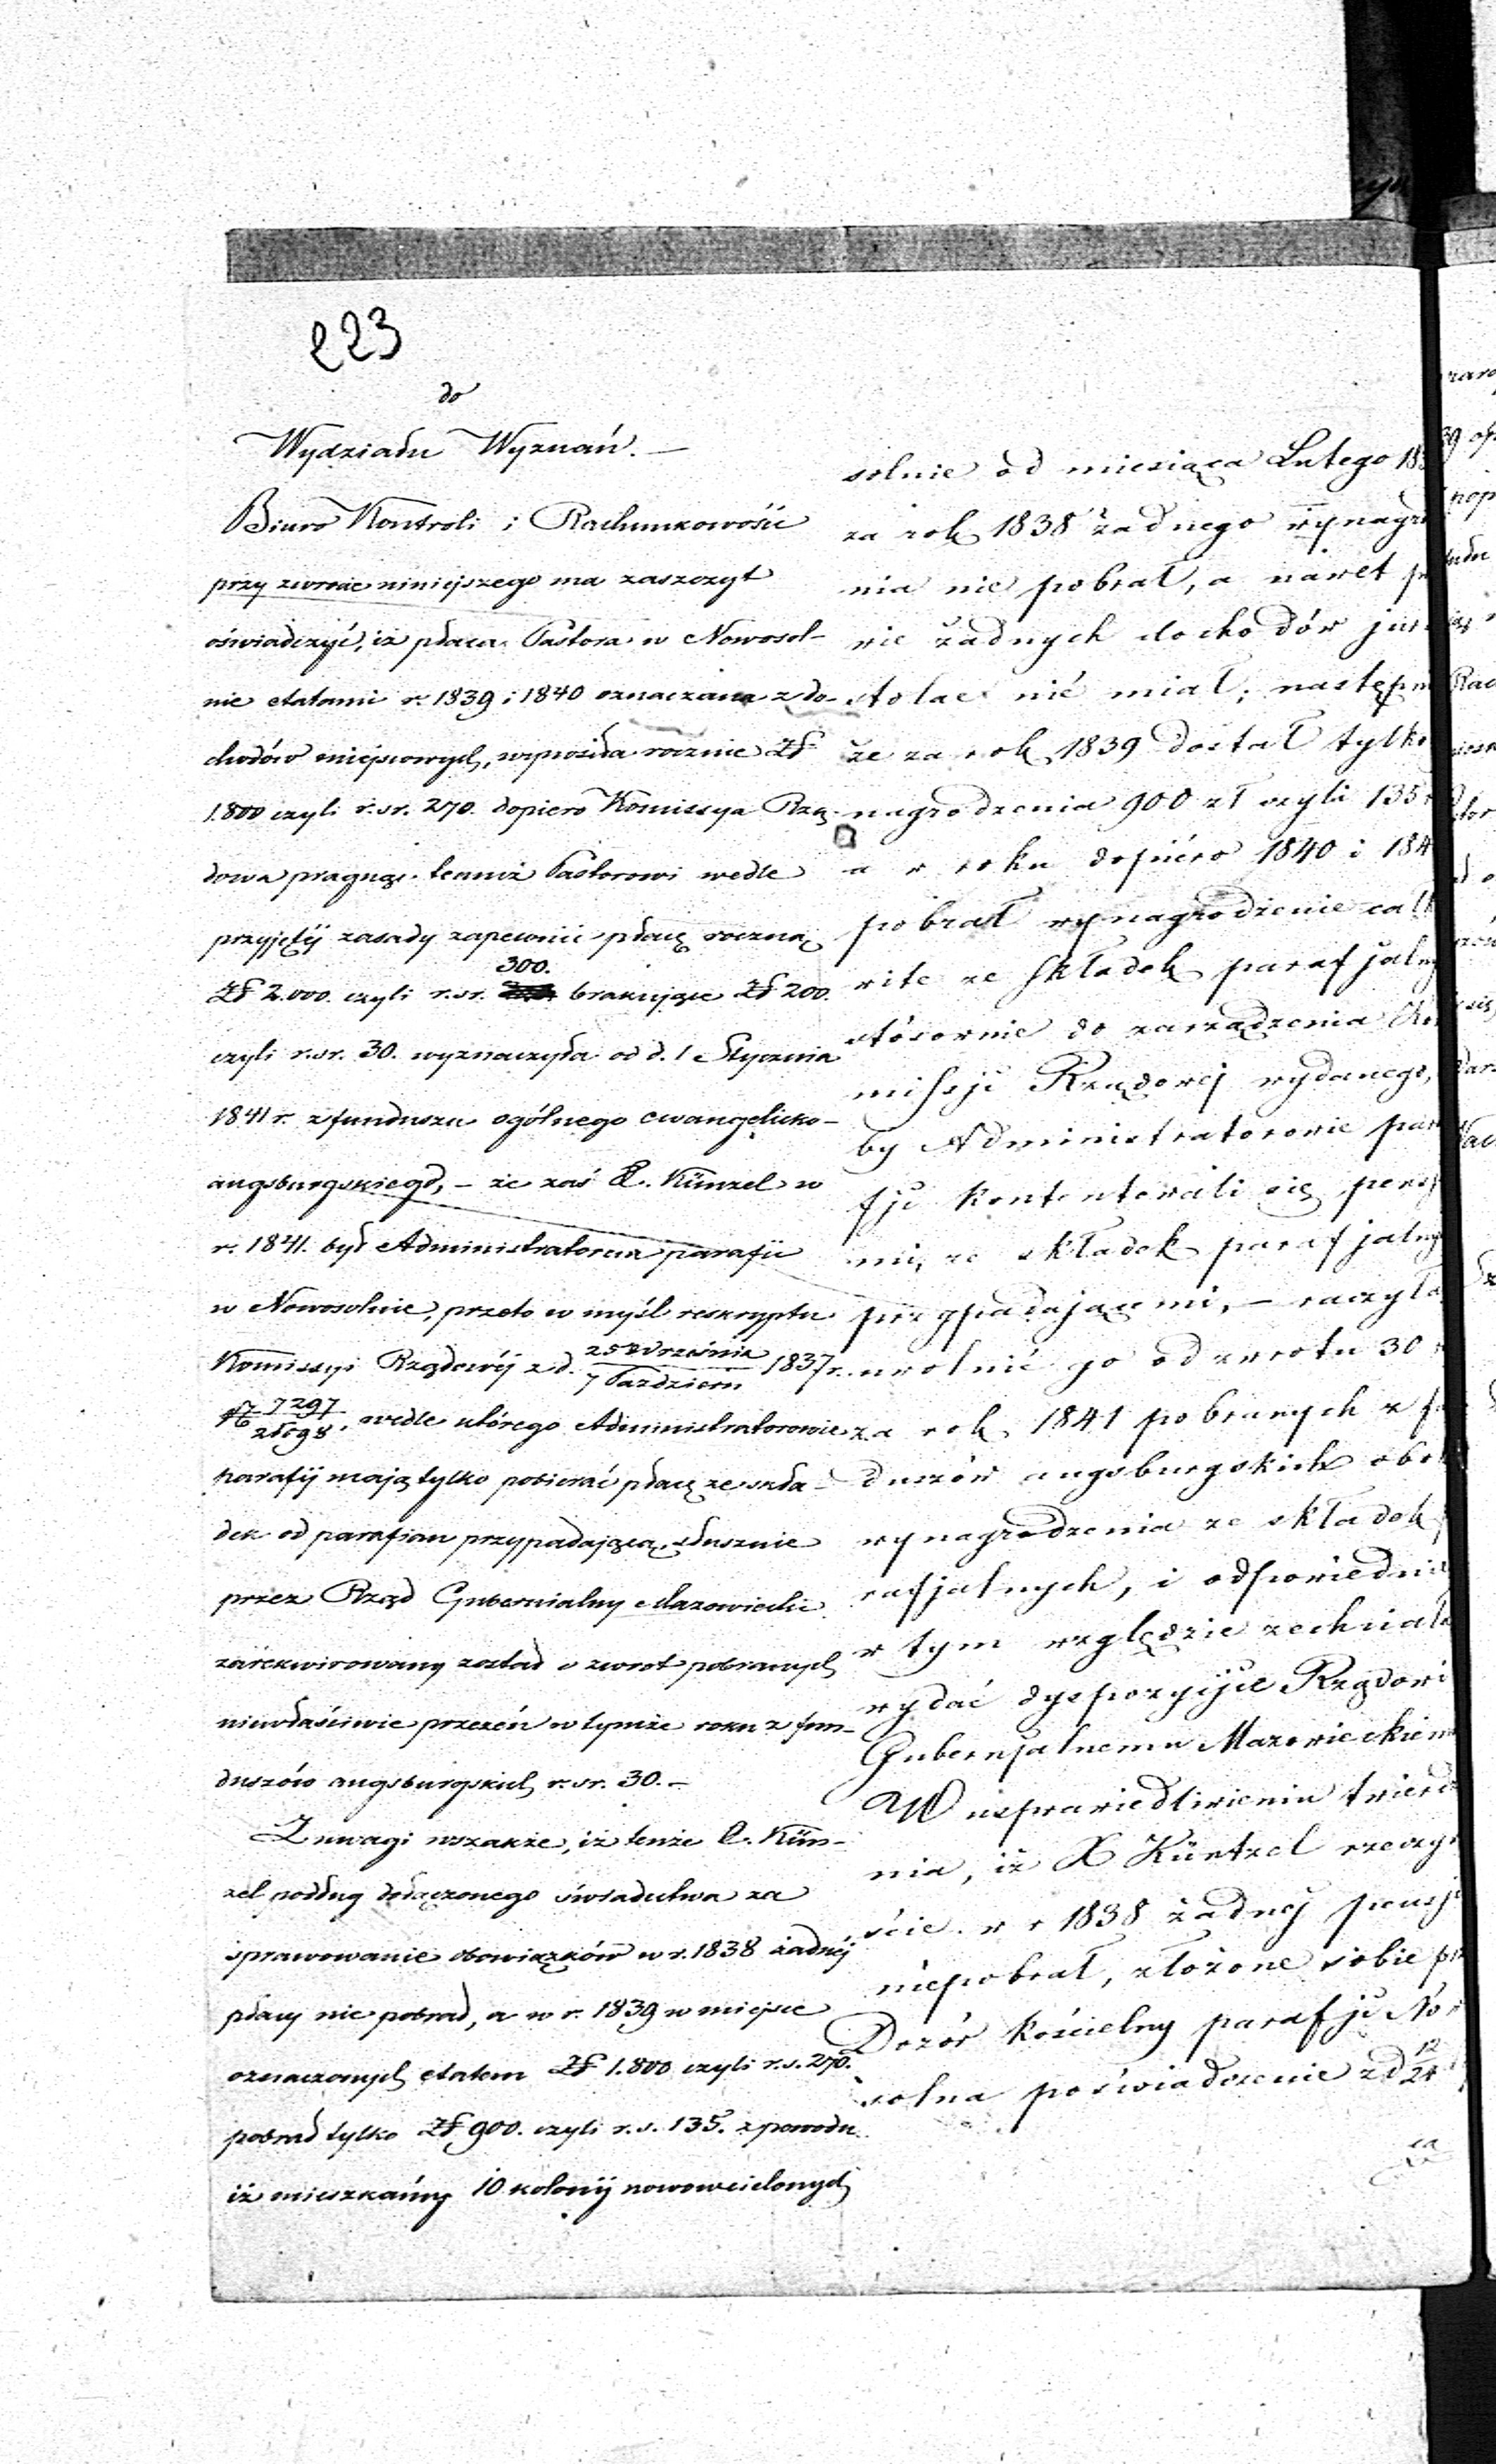 223
do
Wydziału Wyznań. —
Biuro Kontroli i Rachunkowości
przy zwrocie niniejszego ma zaszczyt
oświadczyć, iż płaca Pastora w Nowosol-
nie etatami r. 1839 i 1840 oznaczana z do-
chodów miejscowych, wynosiła rocznie Zł
1.800 czyli r.sr. 270. dopiero Komissya Rzą-
dowa pragnąc temuż Pastorowi wedle
przyjętéj zasady zapewnić płacę roczną
300.
Zł 2.000. czyli r.sr. brakujące Zł 200.
czyli r.sr. 30. wyznaczyła od d. 1 Stycznia
1841 r. z funduszu ogólnego ewangelicko-
augsburgskiego, – że zaś X. Künzel w
r. 1841. był Administratorem parafii
w Nowosolnie, przeto w myśl reskryptu
Komissyi Rządowéj z d. 25 Września / 7 Październ 1837 r.
№ 7297 / 21598, wedle którego Administratorowie
parafij mają tylko pobierać płacę ze skła-
dek od parafian przypadającą, słusznie
przez Rząd Gubernialny Mazowiecki
zarekwirowany został o zwrot pobranych
niewłaściwie przezeń w tymże roku z fun-
duszów augsburgskich r.sr. 30. –
Z uwagi wszakże, iż tenże X. Kün-
zel podług dołączonego świadectwa za
sprawowanie obowiązków w r. 1838 żadnéj
płacy nie pobrał, a w r. 1839 w miejsce
oznaczonych etatem Zł 1.800 czyli r.s. 270.
pobrał tylko Zł 900. czyli r.s. 135. z powodu
iż mieszkańcy 10 kolonij nowowcielonych
solnie od miesiąca Lutego 183
za rok 1838 żadnego wynagro
nia nie pobrał, a nawet
nie żadnych dochodów jura
stolae nié miał; następn
że za rok 1839 dostał tylko
nagrodzenia 900 zł czyli 135
a w roku dopiéro 1840 i 184
pobrał wynagrodzenie całk
wite ze składek parafjalny
stósownie do zarządzenia Ko
missji Rządowéj wydanego,
by Administratorowie para
fji kontentowali się pensj
mi, ze składek parafjalny
przypadającemi, – raczyła
uwolnić go od zwrotu 30
za rok 1841 pobranych z fu
duszów augsburgskich obok
wynagrodzenia ze składek
rafjalnych, i odpowiednie
w tym względzie zechciała
wydać dyspozycije Rządowi
Gubernjalnemu Mazowieckiem
W usprawiedliwieniu twierdz
nia, iż X Küntzel rzeczy
ście w r 1838 żadnéj pensji
niepobrał, złożone sobie prz
Dozór kościelny parafji No
solna poświadczenie z d 12/24